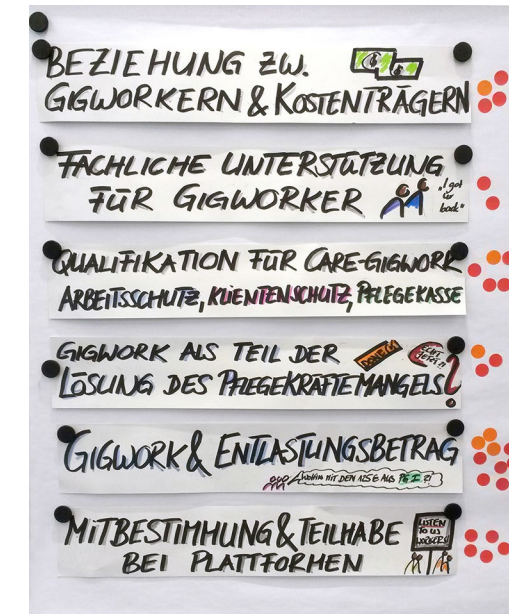 BEZIEHUNG ZW.
GIGWORKERN & KOSTENTRÄGERN
FACHLICHE UNTERSTÜTZUNG
FÜR GIGWORKER
"I got
ur
back"
QUALIFIKATION FÜR CARE-GIGWORK
ARBEITSSCHUTZ, KLIENTENSCHUTZ, PFLEGEKASSE
GIGWORK ALS TEIL DER
LÖSUNG DES PFLEGEKRÄFTEMANGELS?
ECHT
JETZT?!
GIGWORK & ENTLASTUNGSBETRAG
WOHIN MIT DEN 125 € AUS
MITBESTIMMUNG & TEILHABE
BEI PLATTFORMEN
LISTEN
TO US
WORKERS!